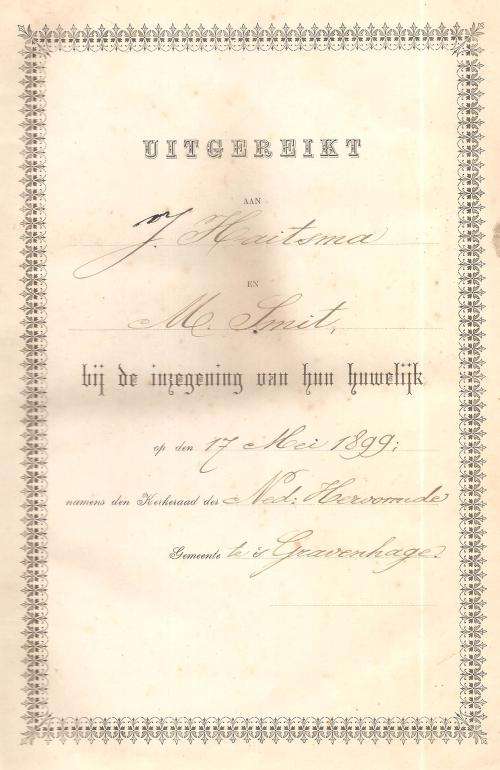 UITGEREIKT
AAN
J. Haitsma
EN
M. Smit,
bij de inzegening van hun huwelijk
op den 17 Mei 1899;
namens den Kerkeraad der Ned: Hervormde
Gemeente te 's Gravenhage.